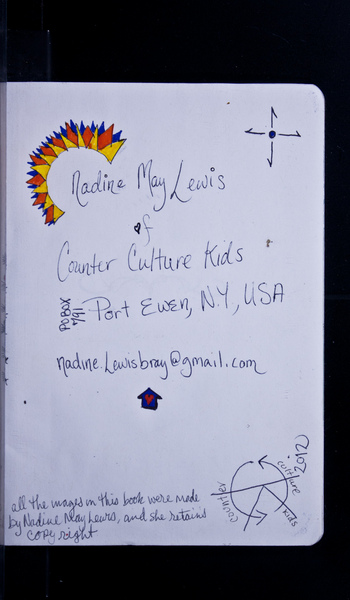 Nadine May Lewis
of
Counter Culture Kids
PO BOX
791
Port Ewen, N.Y., USA
nadine.lewisbray@gmail.com
counter
culture
kids
2012
all the images in this book were made
by Nadine May Lewis, and she retains
copyright